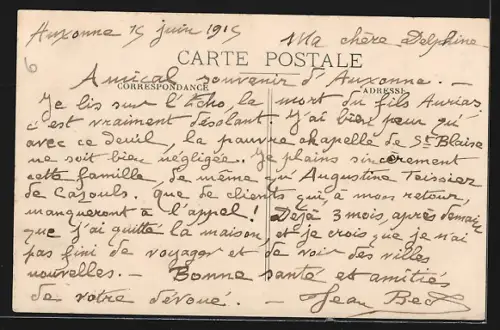 Auxonne 15 juin 1915 Ma chère Delphine
CARTE POSTALE
Amical souvenir d'Auxonne. -
CORRESPONDANCE ADRESSE
Je lis sur l'Echo, la mort du fils Aurias
c'est vraiment désolant. J'ai bien peur qu'
avec ce deuil, la pauvre chapelle de St Blaise
ne soit bien négligée. Je plains sincèrement
cette famille de même qu'Augustine Teissier
de Cazouls. que de clients qui, à mon retour,
manqueront à l'appel! Déjà 3 mois, après demain
que j'ai quitté la maison, et je crois que je n'ai
pas fini de voyager et de voir des villes
nouvelles. - Bonne santé et amitiés
de votre dévoué. - Jean
6